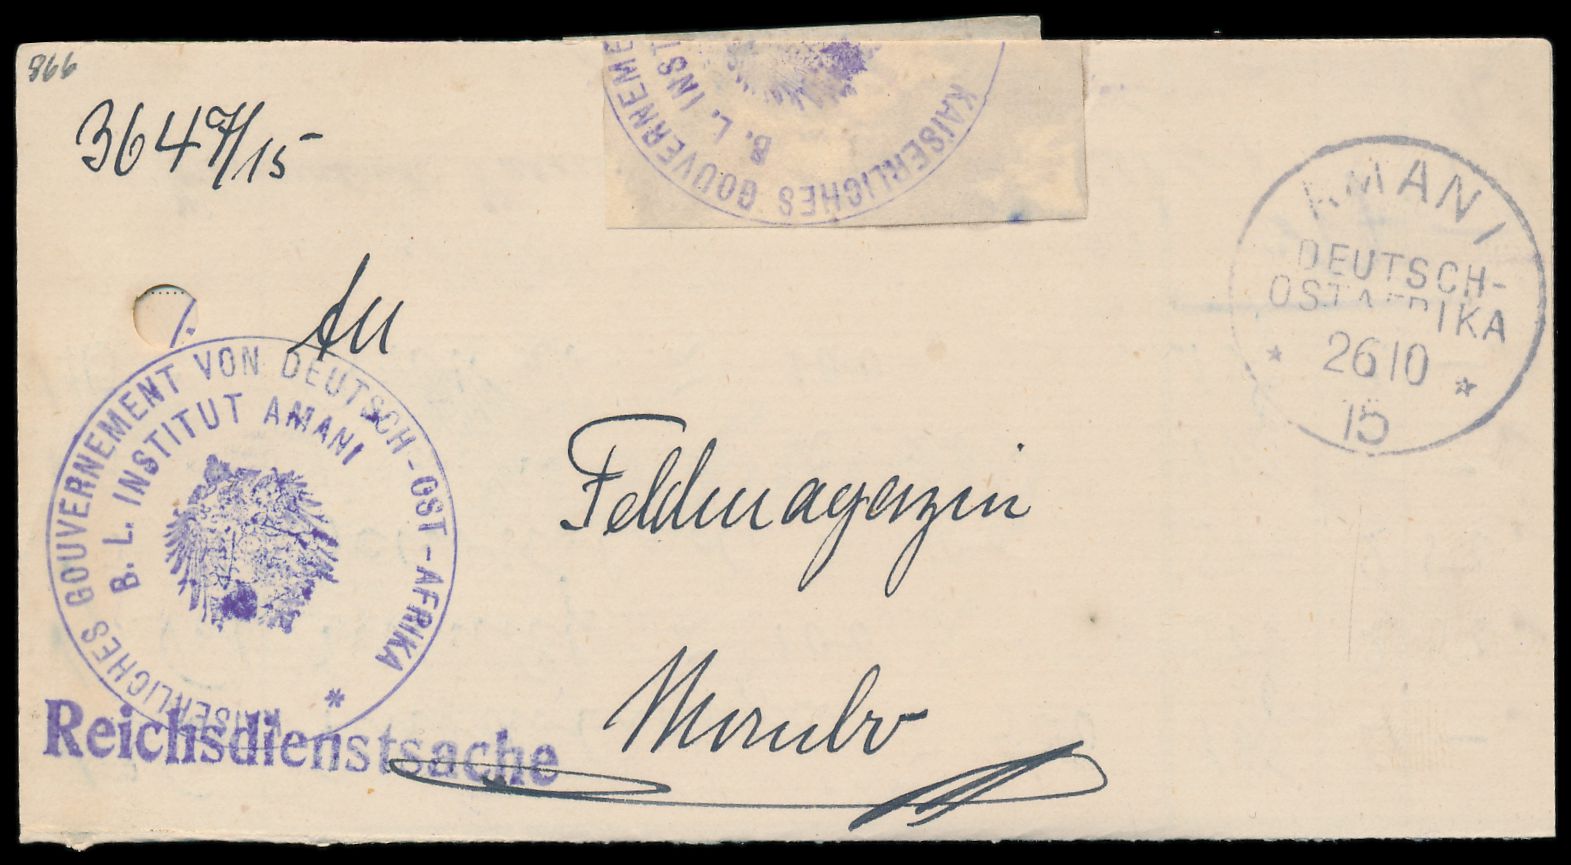 866
3647/15
KAISERLICHES GOUVERNEME
B. L. INST
AMANI
DEUTSCH-
OSTAFRIKA
* 26 10 *
15
An
KAISERLICHES GOUVERNEMENT VON DEUTSCH-OST-AFRIKA
B. L. INSTITUT AMANI
*
Feldmagazin
Mombo
Reichsdienstsache